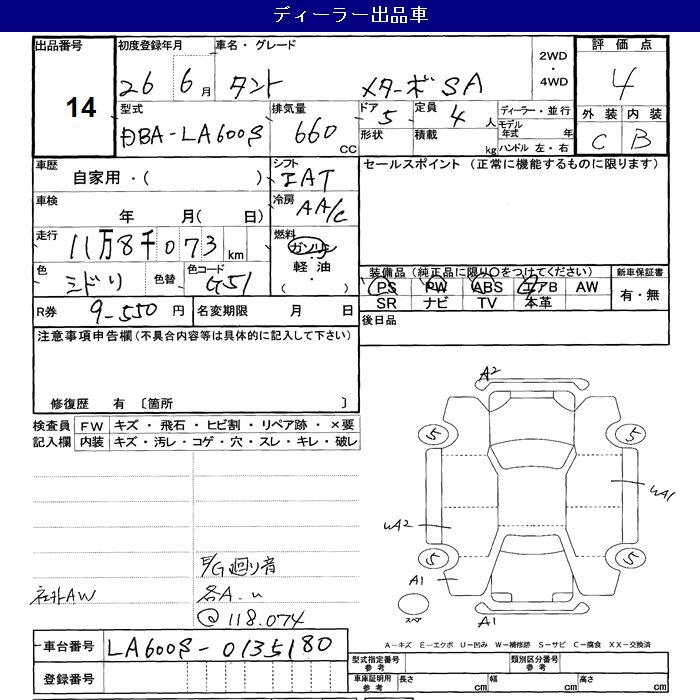 ディーラー出品車
出品番号 14
初度登録年月 26 6月
車名・グレード タント メターボSA
2WD ・ 4WD
評価点 4
外装 C 内装 B
型式 DBA-LA600S
排気量 660 CC
ドア 5 定員 4人
形状 積載 kg
ディーラー・並行
モデル年式 年
ハンドル 左・右
車歴 自家用・( )
シフト IAT
セールスポイント(正常に機能するものに限ります)
車検 年 月( 日)
冷房 AA/C
走行 11万8千073km
燃料 ガソリン ・ 軽油 ・ ( )
色 ミドリ 色替 色コード G51
装備品(純正品に限り○をつけてください)
PS PW ABS エアB AW
SR ナビ TV 本革
新車保証書 有・無
R券 9-550円
名変期限 月 日
後日品
注意事項申告欄(不具合内容等は具体的に記入して下さい)
修復歴 有 〔箇所 〕
検査員記入欄
FW キズ・飛石・ヒビ割・リペア跡・×要
内装 キズ・汚レ・コゲ・穴・スレ・キレ・破レ
A2
5 5
UA1
UA2
5 5
A1
スペア
A1
E/G廻り音
各A.U
@118.074
社外AW
A-キズ E-エクボ U-凹み W-補修跡 S-サビ C-腐食 XX-交換済
車台番号 LA600S-0135180
登録番号
型式指定番号 参考
類別区分番号 参考
車庫証明用 参考 長さ cm 幅 cm 高さ cm